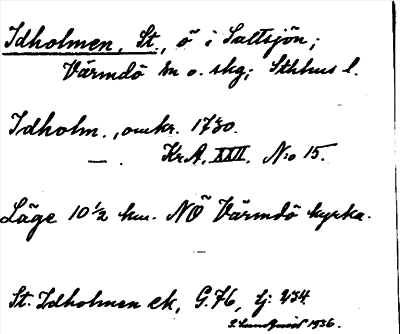 Idholmen, St., ö i Saltsjön;
Värmdö sn o. skg; Sthlms l.
Idholm., omkr. 1730.
— . Kr.A. XXII. N:o 15.
Läge 10 1/2 km. NÖ Värmdö kyrka.
—
St. Idholmen ek, G. 76, Lj: 234
S. Lundqvist 1936.